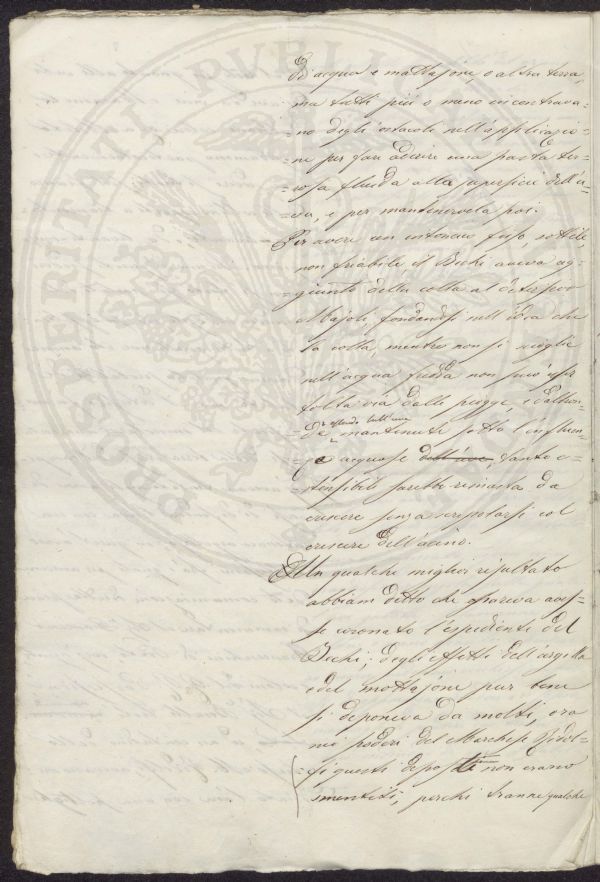 PROSPERITATI PVBLICAE
Di acqua e mattajone, o altra terra,
ma tutti più o meno incontrava-
=no degli ostacoli nell'applicazio-
=ne per fare aderire una pasta ter-
=rosa fluida alla superficie dell'u-
va, e per mantenervela poi.
Per avere un intonaco fuso, sottile
non friabile, il Bechi aveva ag-
=giunto della colla al
fondandosi sull'idea che
la colla, mentre non si scioglie
nell'acqua fredda non può esser
tolta via dalle piogge, e d'altron-
=de essendo dall'uva mantenuta sotto l'influen-
=za acquose dell'uva, tanto e-
=stensibile sarebbe rimasta da
crescere senza screpolarsi col
crescere dell'acino.
Un qualche miglior resultato
abbiam detto che pareva aves-
=se coronato l'espediente del
Bechi; degli effetti dell'argilla
e del mattajone pur bene
si deponeva da molti, ora
nei poderi del Marchese Ridol-
=fi questi deposti non erano
smentiti, perchè tranne qualche